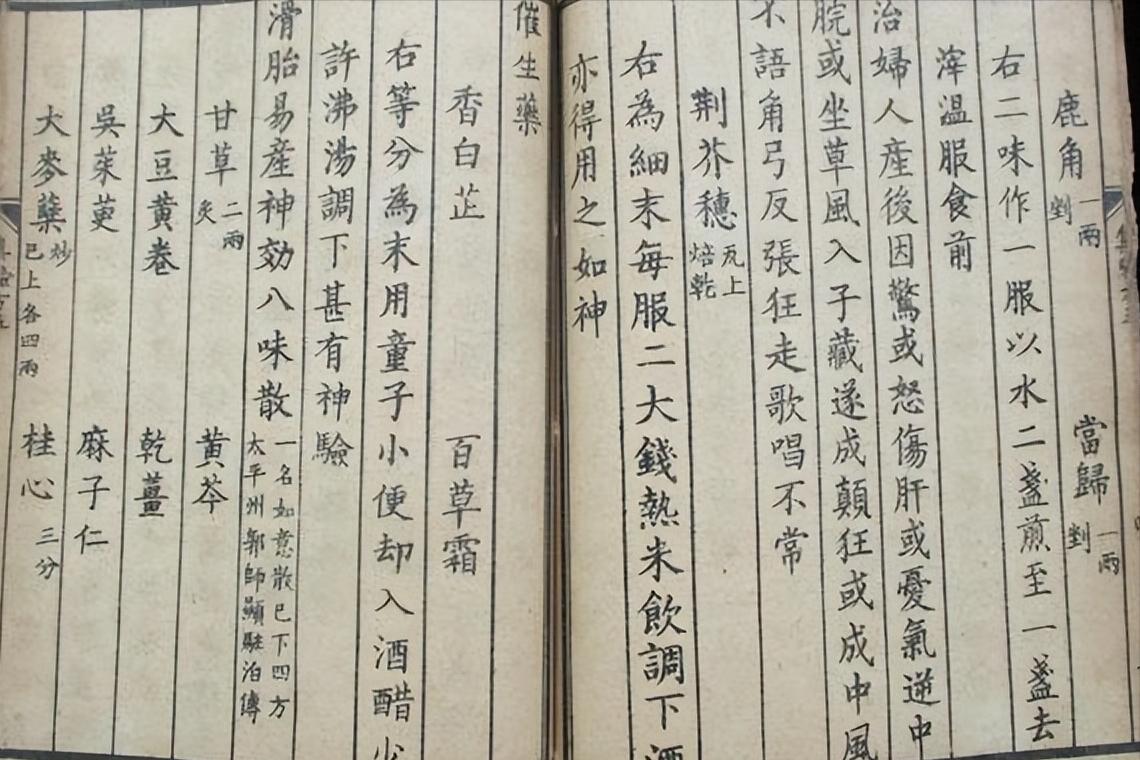 鹿角一兩剉 當歸一兩剉
右二味作一服以水二盞煎至一盞去
滓温服食前
治婦人產後因驚或怒傷肝或憂氣逆中
脘或坐草風入子藏遂成顛狂或成中風
不語角弓反張狂走歌唱不常
荆芥穗瓦上焙乾
右為細末每服二大錢熱米飲調下酒
亦得用之如神
催生藥
香白芷 百草霜
右等分為末用童子小便却入酒醋少
許沸湯調下甚有神驗
滑胎易產神効八味散一名如意散已下四方太平州郭師顯駐泊傳
甘草二兩炙 黄芩
大豆黄卷 乾薑
吳茱萸 麻子仁
大麥蘖炒已上各四兩 桂心三分